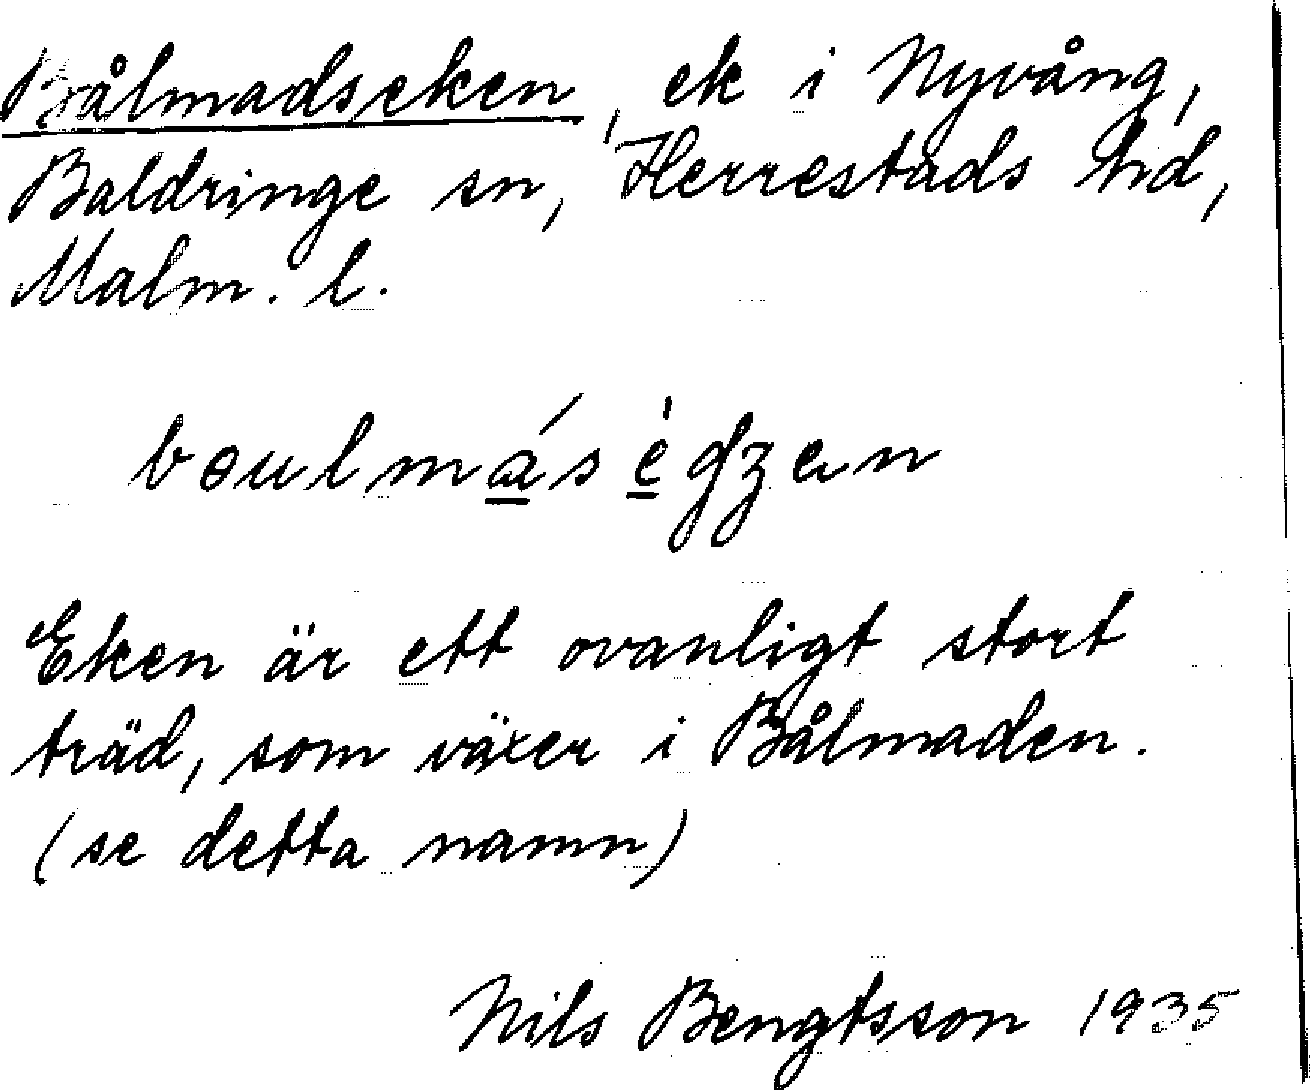 Bålmadseken, ek i Nyvång,
Baldringe sn, Herrestads hd,
Malm. l.
bɵulmásègʒen
Eken är ett ovanligt stort
träd, som växer i Bålmaden.
(se detta namn)
Nils Bengtsson 1935